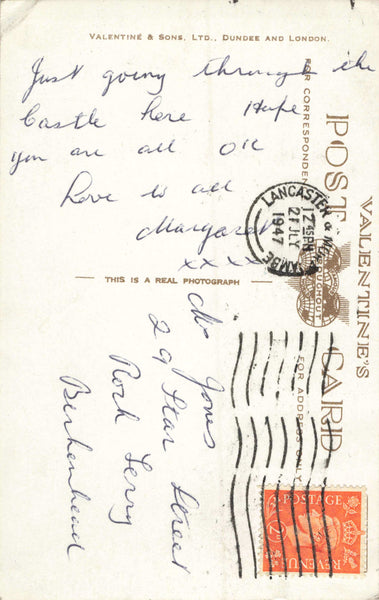 VALENTINE & SONS, LTD., DUNDEE AND LONDON.
Just going through the
Castle here Hope
you are all OK
Love to all
Margaret
x x x x
FOR CORRESPONDENCE
VALENTINE'S
POST CARD
THROUGHOUT
FOR ADDRESS ONLY
THIS IS A REAL PHOTOGRAPH
LANCASTER &
12 45 PM
21 JLY
1947
Jones
29 Star Street
Rock Ferry
Birkenhead
POSTAGE
REVENUE